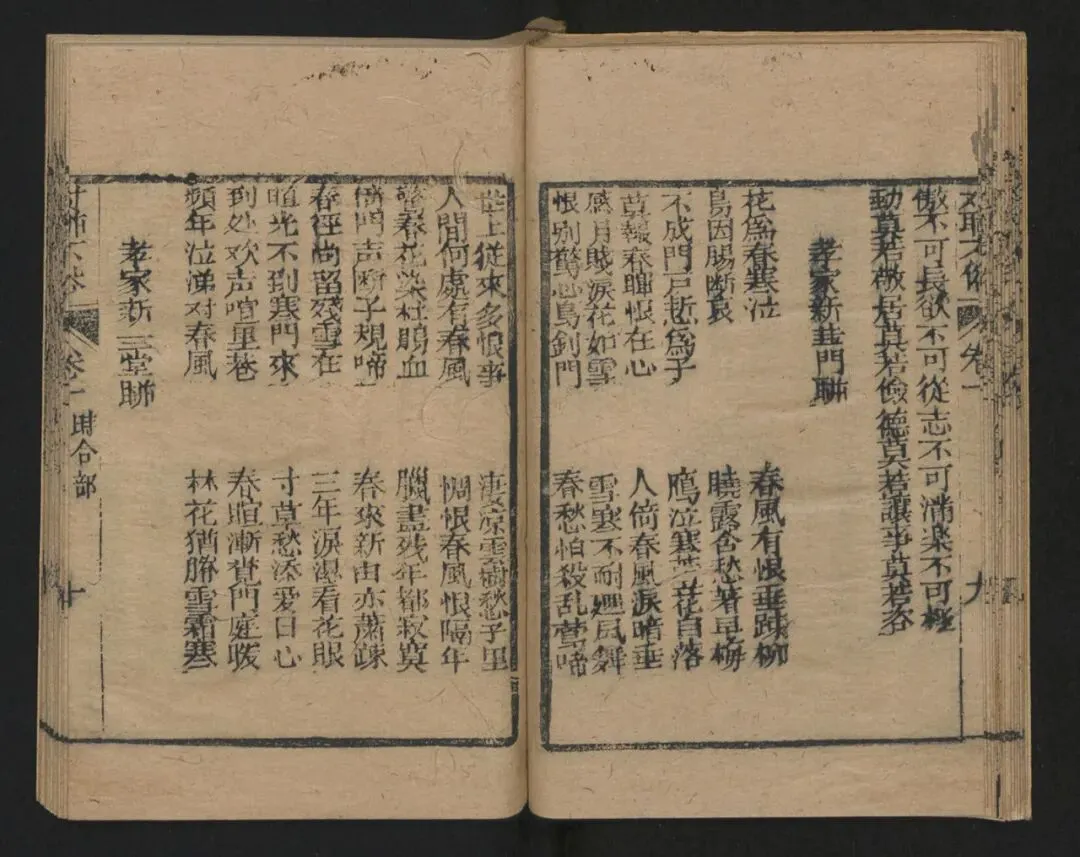 卷一 九
傲不可長欲不可從志不可滿楽不可極
動莫若敬居莫若儉德莫若讓事莫若咨
孝家新韭門聯
花爲春寒泣 春風有恨垂踈柳
鳥因腸断哀 曉露含愁著早梅
不成門戶慙爲子 鴈泣寒芦花自落
莫報春暉恨在心 人倚春風淚暗垂
感月賎淚花如雪 雪寒不耐廽風舞
恨別驚心鳥到門 春愁怕殺乱莺啼
世上從來多恨事 淒凉雲樹愁千里
人間何處有春風 惆恨春風恨隔年
春花染杜鵑血 臘盡残年都寂寞
門声断子規啼 春來新由亦蕭踈
春徑尚留殘雪在 三年淚湿看花眼
暄光不到寒門來 寸草愁添爱日心
到处欢声喧里巷 春暄漸覚門庭暖
頻年泣涕对春風 林花猶勝雪霜寒
孝家新三堂聯
卷一 時合部 十